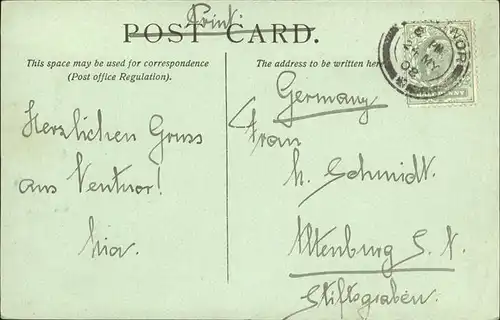 Print.
POST CARD.
This space may be used for correspondence
(Post office Regulation).
The address to be written here
Germany
Herzlichen Gruss
aus Ventnor!
Mia.
Frau
M. Schmidt.
Altenburg S. A.
Stiftsgraben.